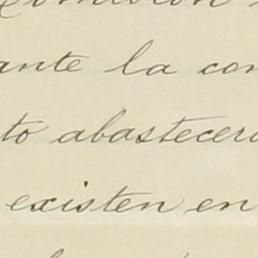 ante la con
to abastecer
existen en